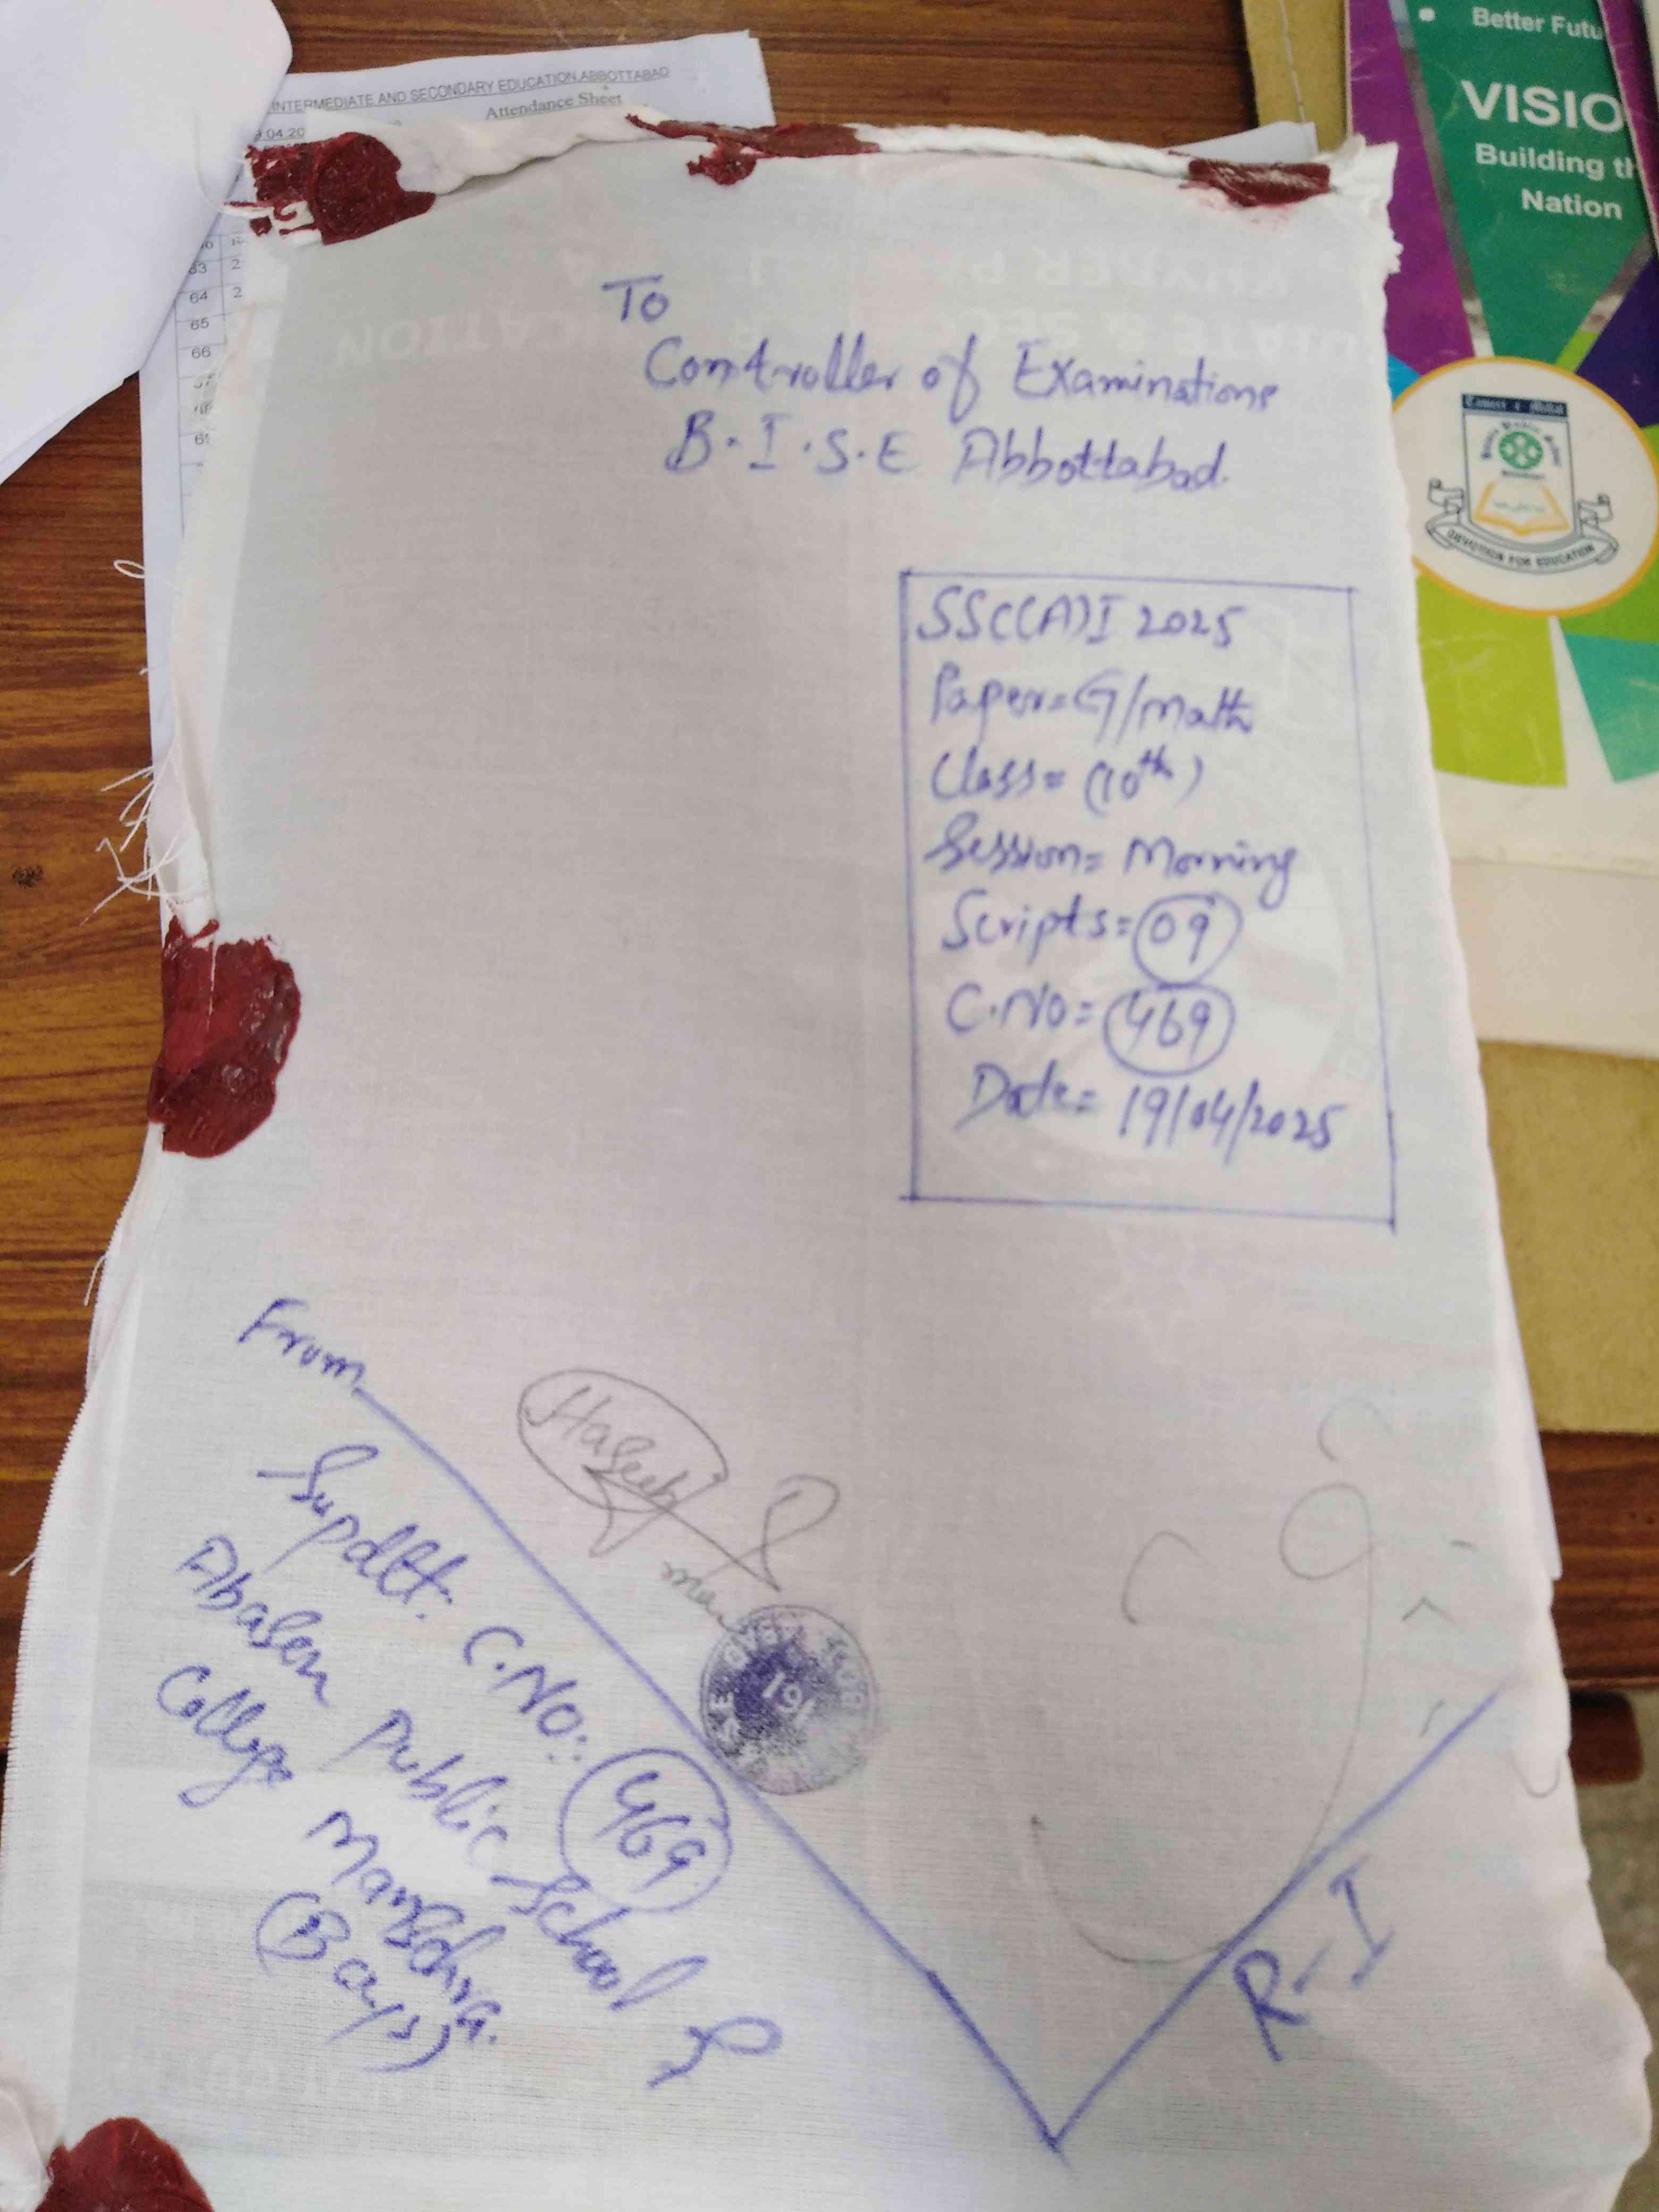 INTERMEDIATE AND SECONDARY EDUCATION, ABBOTTABAD
Attendance Sheet
9.04.20
63 2
64 2
65
66
Better Futu
VISIO
Building th
Nation
DEVOTION FOR EDUCATION
To
Controller of Examinations
B.I.S.E Abbottabad.
SSC(A)I 2025
Paper=G/Math
Class= (10th)
Session= Morning
Scripts= 09
C.No= 469
Date= 19/04/2025
From
Supdtt. C.No: 469
Abaseen Public School &
College Mansehra.
(Boys)
Haseeb
191
R-I